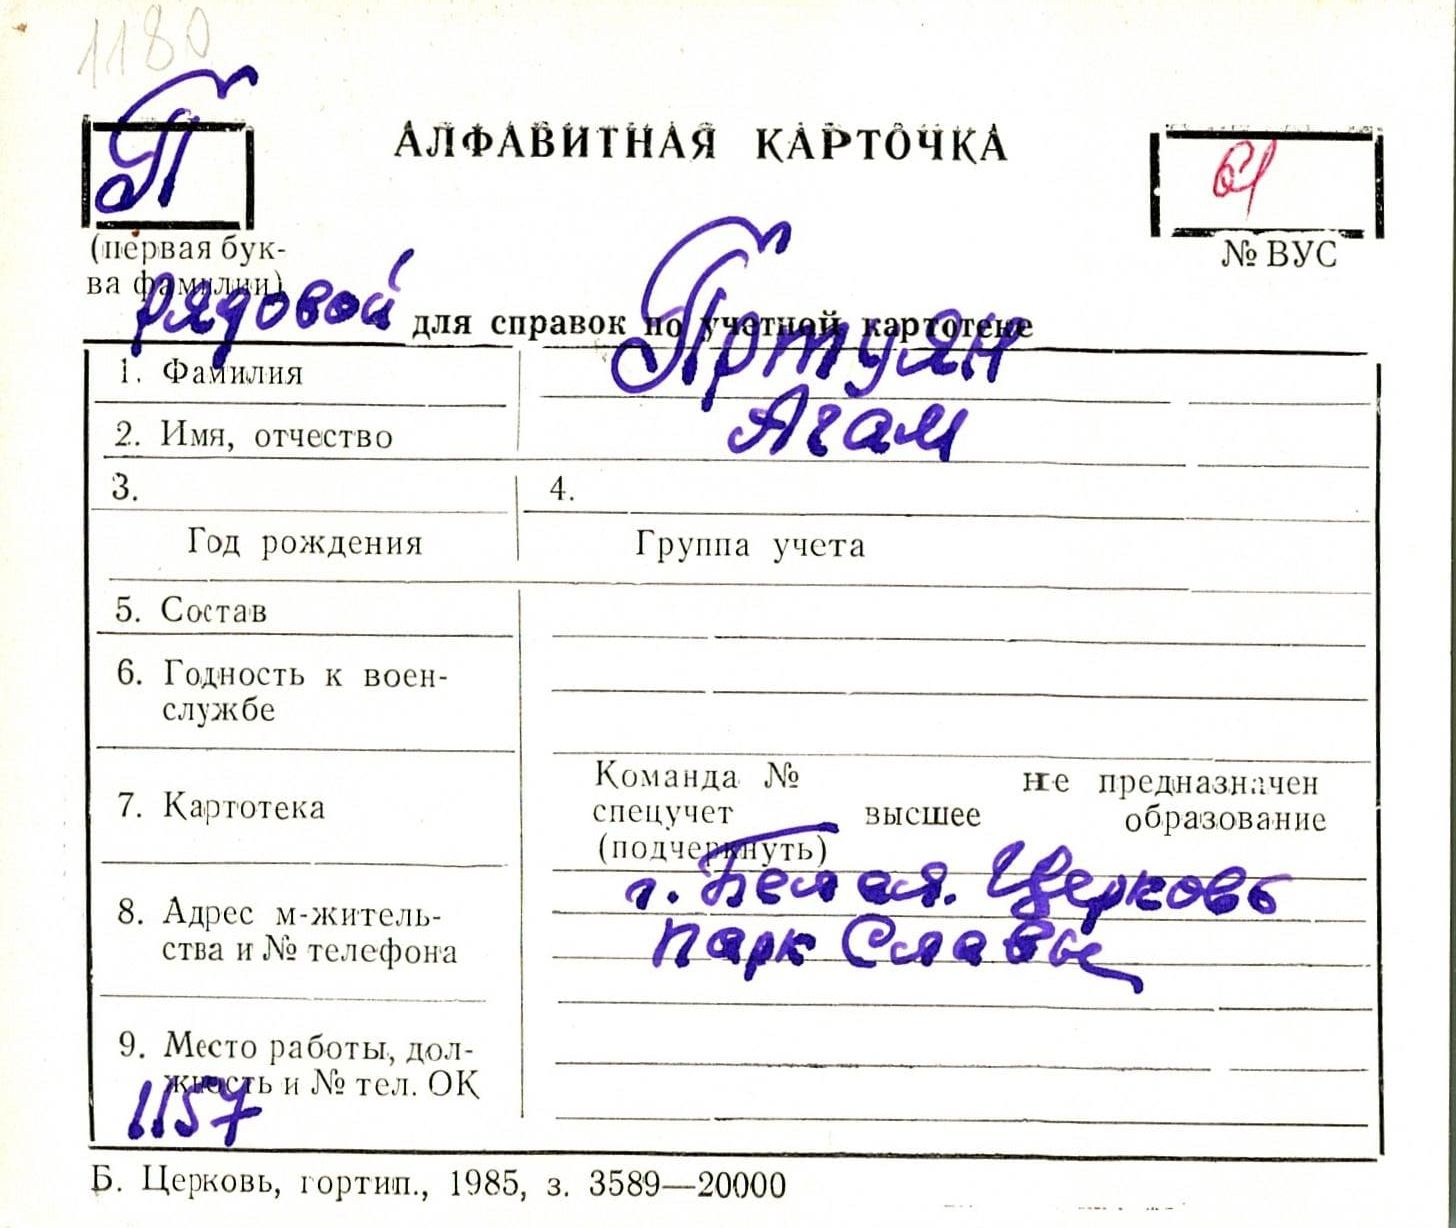 1180
П
АЛФАВИТНАЯ КАРТОЧКА
61
(первая бук-
ва фамилии)
№ ВУС
рядовой
для справок по учетной картотеке
1. Фамилия Пртуян
2. Имя, отчество Агам
3. 4.
Год рождения Группа учета
5. Состав
6. Годность к воен-
службе
7. Картотека
Команда № не предназначен
спецучет высшее образование
(подчеркнуть)
8. Адрес м-житель-
ства и № телефона
г. Белая. Церковь
парк Славы
9. Место работы, дол-
жность и № тел. ОК
1157
Б. Церковь, гортип., 1985, з. 3589—20000